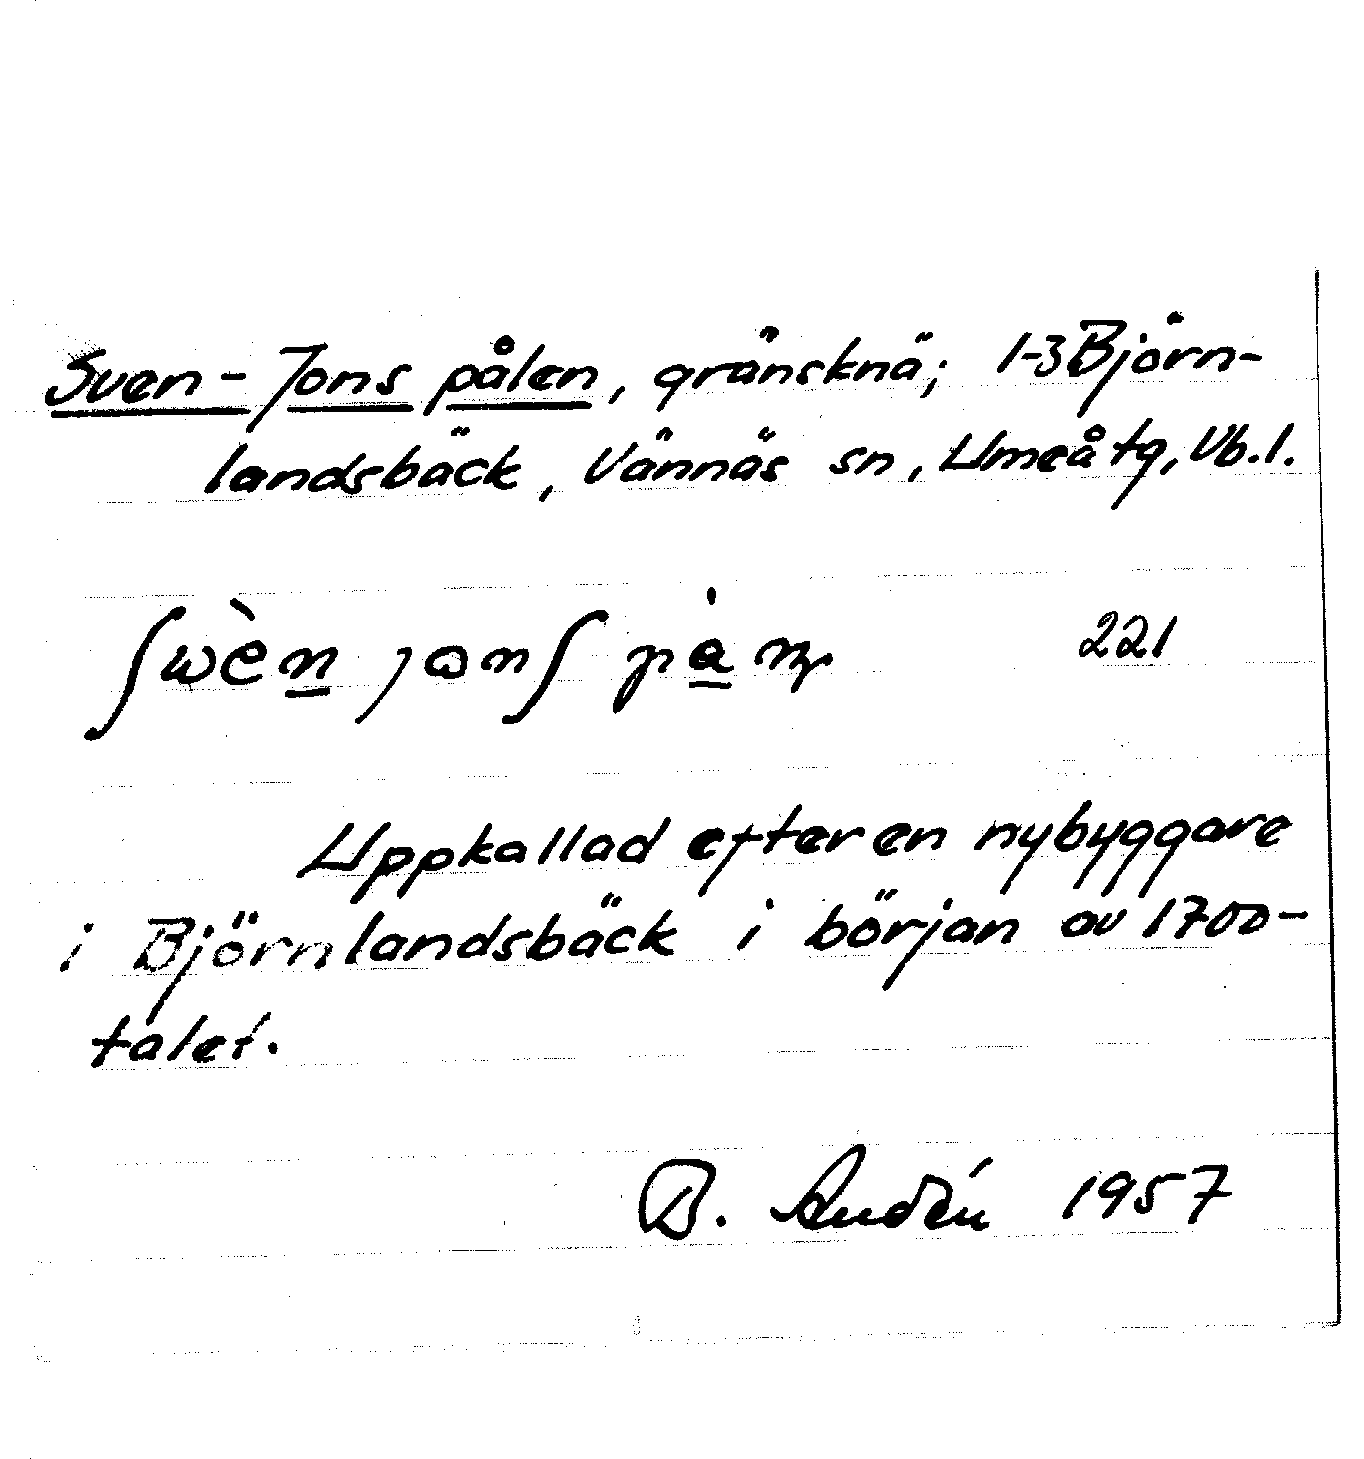 Sven-Jons pålen, gränsknä; 1-3 Björn-
landsbäck, Vännäs sn, Umeå tg, Vb.l.
221
Uppkallad efter en nybyggare
i Björnlandsbäck i början av 1700-
talet.
B. Andén 1957